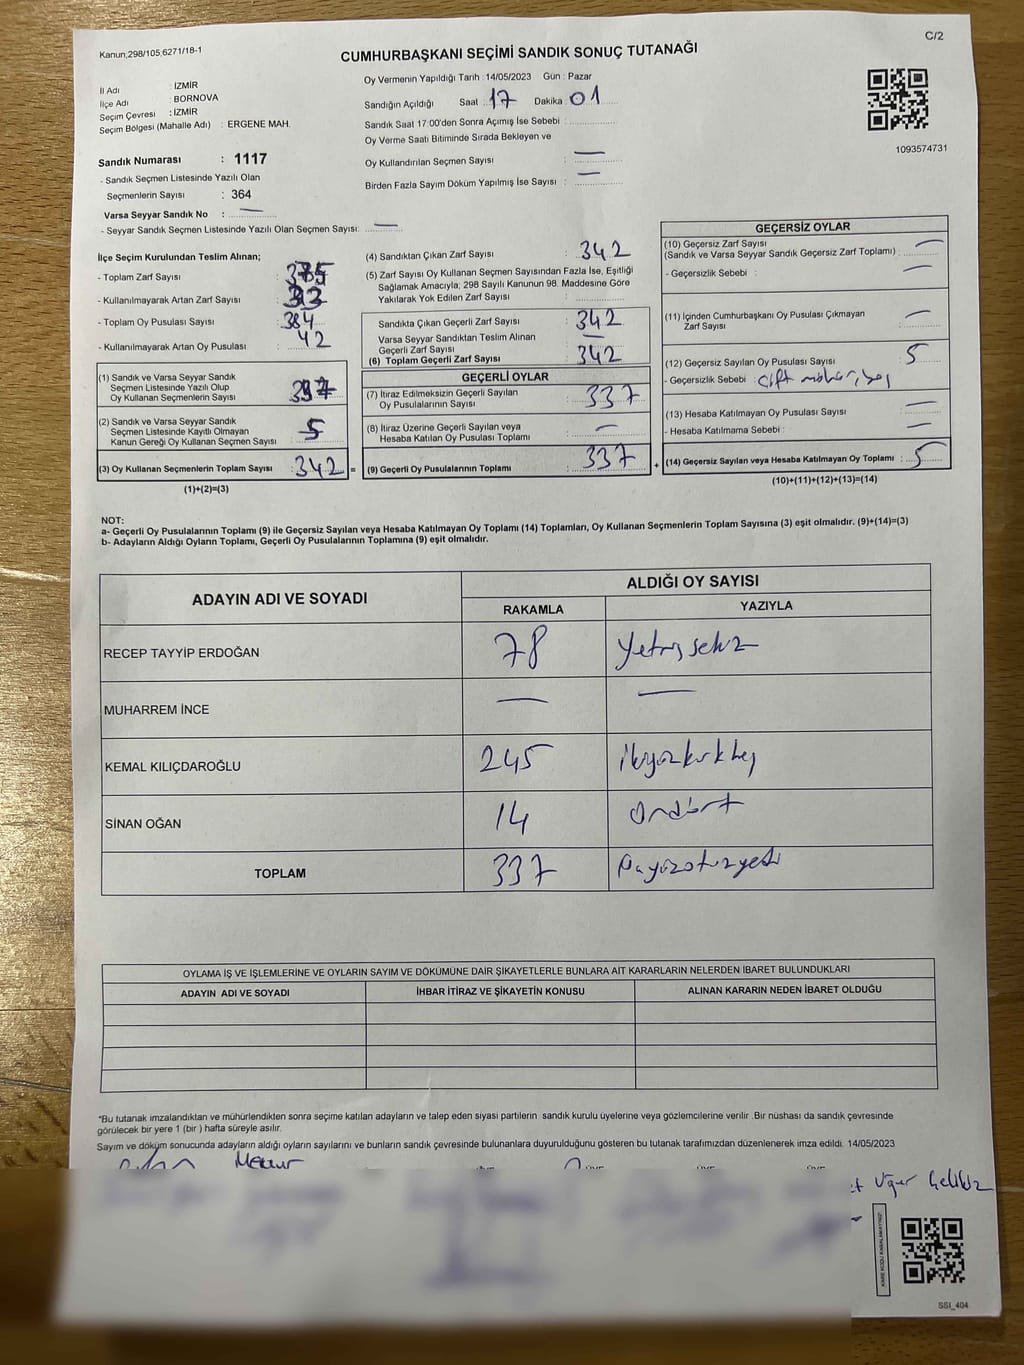 Kanun;298/105,6271/18-1
C/2
CUMHURBAŞKANI SEÇİMİ SANDIK SONUÇ TUTANAĞI
İl Adı : İZMİR
İlçe Adı : BORNOVA
Seçim Çevresi : İZMİR
Seçim Bölgesi (Mahalle Adı) : ERGENE MAH.
Oy Vermenin Yapıldığı Tarih : 14/05/2023 Gün : Pazar
Sandığın Açıldığı Saat : 17 Dakika 01
Sandık Saat 17:00'den Sonra Açılmış İse Sebebi :
Oy Verme Saati Bitiminde Sırada Bekleyen ve
Oy Kullandırılan Seçmen Sayısı : —
Birden Fazla Sayım Döküm Yapılmış İse Sayısı : —
1093574731
Sandık Numarası : 1117
- Sandık Seçmen Listesinde Yazılı Olan
Seçmenlerin Sayısı : 364
Varsa Seyyar Sandık No : —
- Seyyar Sandık Seçmen Listesinde Yazılı Olan Seçmen Sayısı: —
İlçe Seçim Kurulundan Teslim Alınan;
- Toplam Zarf Sayısı : 375
- Kullanılmayarak Artan Zarf Sayısı :
- Toplam Oy Pusulası Sayısı : 384
- Kullanılmayarak Artan Oy Pusulası : 42
(1) Sandık ve Varsa Seyyar Sandık
Seçmen Listesinde Yazılı Olup
Oy Kullanan Seçmenlerin Sayısı :
(2) Sandık ve Varsa Seyyar Sandık
Seçmen Listesinde Kayıtlı Olmayan
Kanun Gereği Oy Kullanan Seçmen Sayısı : 5
(3) Oy Kullanan Seçmenlerin Toplam Sayısı : 342 =
(1)+(2)=(3)
(4) Sandıktan Çıkan Zarf Sayısı : 342
(5) Zarf Sayısı Oy Kullanan Seçmen Sayısından Fazla İse, Eşitliği
Sağlamak Amacıyla; 298 Sayılı Kanunun 98. Maddesine Göre
Yakılarak Yok Edilen Zarf Sayısı :
Sandıkta Çıkan Geçerli Zarf Sayısı : 342
Varsa Seyyar Sandıktan Teslim Alınan
Geçerli Zarf Sayısı : —
(6) Toplam Geçerli Zarf Sayısı : 342
GEÇERLİ OYLAR
(7) İtiraz Edilmeksizin Geçerli Sayılan
Oy Pusulalarının Sayısı : 337
(8) İtiraz Üzerine Geçerli Sayılan veya
Hesaba Katılan Oy Pusulası Toplamı : —
(9) Geçerli Oy Pusulalarının Toplamı : 337 +
GEÇERSİZ OYLAR
(10) Geçersiz Zarf Sayısı
(Sandık ve Varsa Seyyar Sandık Geçersiz Zarf Toplamı) : —
- Geçersizlik Sebebi : —
(11) İçinden Cumhurbaşkanı Oy Pusulası Çıkmayan
Zarf Sayısı : —
(12) Geçersiz Sayılan Oy Pusulası Sayısı : 5
- Geçersizlik Sebebi : çift mühür,
(13) Hesaba Katılmayan Oy Pusulası Sayısı : —
- Hesaba Katılmama Sebebi : —
(14) Geçersiz Sayılan veya Hesaba Katılmayan Oy Toplamı : 5
(10)+(11)+(12)+(13)=(14)
NOT:
a- Geçerli Oy Pusulalarının Toplamı (9) ile Geçersiz Sayılan veya Hesaba Katılmayan Oy Toplamı (14) Toplamları, Oy Kullanan Seçmenlerin Toplam Sayısına (3) eşit olmalıdır. (9)+(14)=(3)
b- Adayların Aldığı Oyların Toplamı, Geçerli Oy Pusulalarının Toplamına (9) eşit olmalıdır.
ADAYIN ADI VE SOYADI ALDIĞI OY SAYISI
RAKAMLA YAZIYLA
RECEP TAYYİP ERDOĞAN 78 Yetmişsekiz
MUHARREM İNCE — —
KEMAL KILIÇDAROĞLU 245 ikiyüzkırkbeş
SİNAN OĞAN 14 Ondört
TOPLAM 337 üçyüzotuzyedi
OYLAMA İŞ VE İŞLEMLERİNE VE OYLARIN SAYIM VE DÖKÜMÜNE DAİR ŞİKAYETLERLE BUNLARA AİT KARARLARIN NELERDEN İBARET BULUNDUKLARI
ADAYIN ADI VE SOYADI İHBAR İTİRAZ VE ŞİKAYETİN KONUSU ALINAN KARARIN NEDEN İBARET OLDUĞU
*Bu tutanak imzalandıktan ve mühürlendikten sonra seçime katılan adayların ve talep eden siyasi partilerin sandık kurulu üyelerine veya gözlemcilerine verilir .Bir nüshası da sandık çevresinde
görülecek bir yere 1 (bir ) hafta süreyle asılır.
Sayım ve döküm sonucunda adayların aldığı oyların sayılarını ve bunların sandık çevresinde bulunanlara duyurulduğunu gösteren bu tutanak tarafımızdan düzenlenerek imza edildi. 14/05/2023
Memur
Uğur
SSI_404